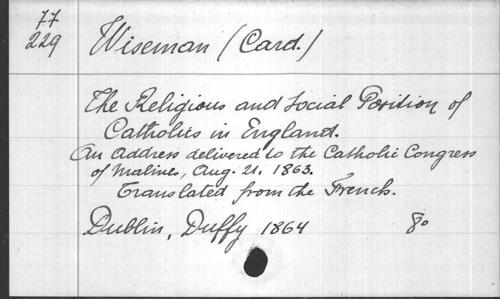 77
229
Wiseman (Card.)
The Religious and Social Position of
Catholics in England.
An Address delivered to the Catholic Congress
of Malines, Aug. 21, 1863.
Translated from the French.
Dublin, Duffy 1864 8o